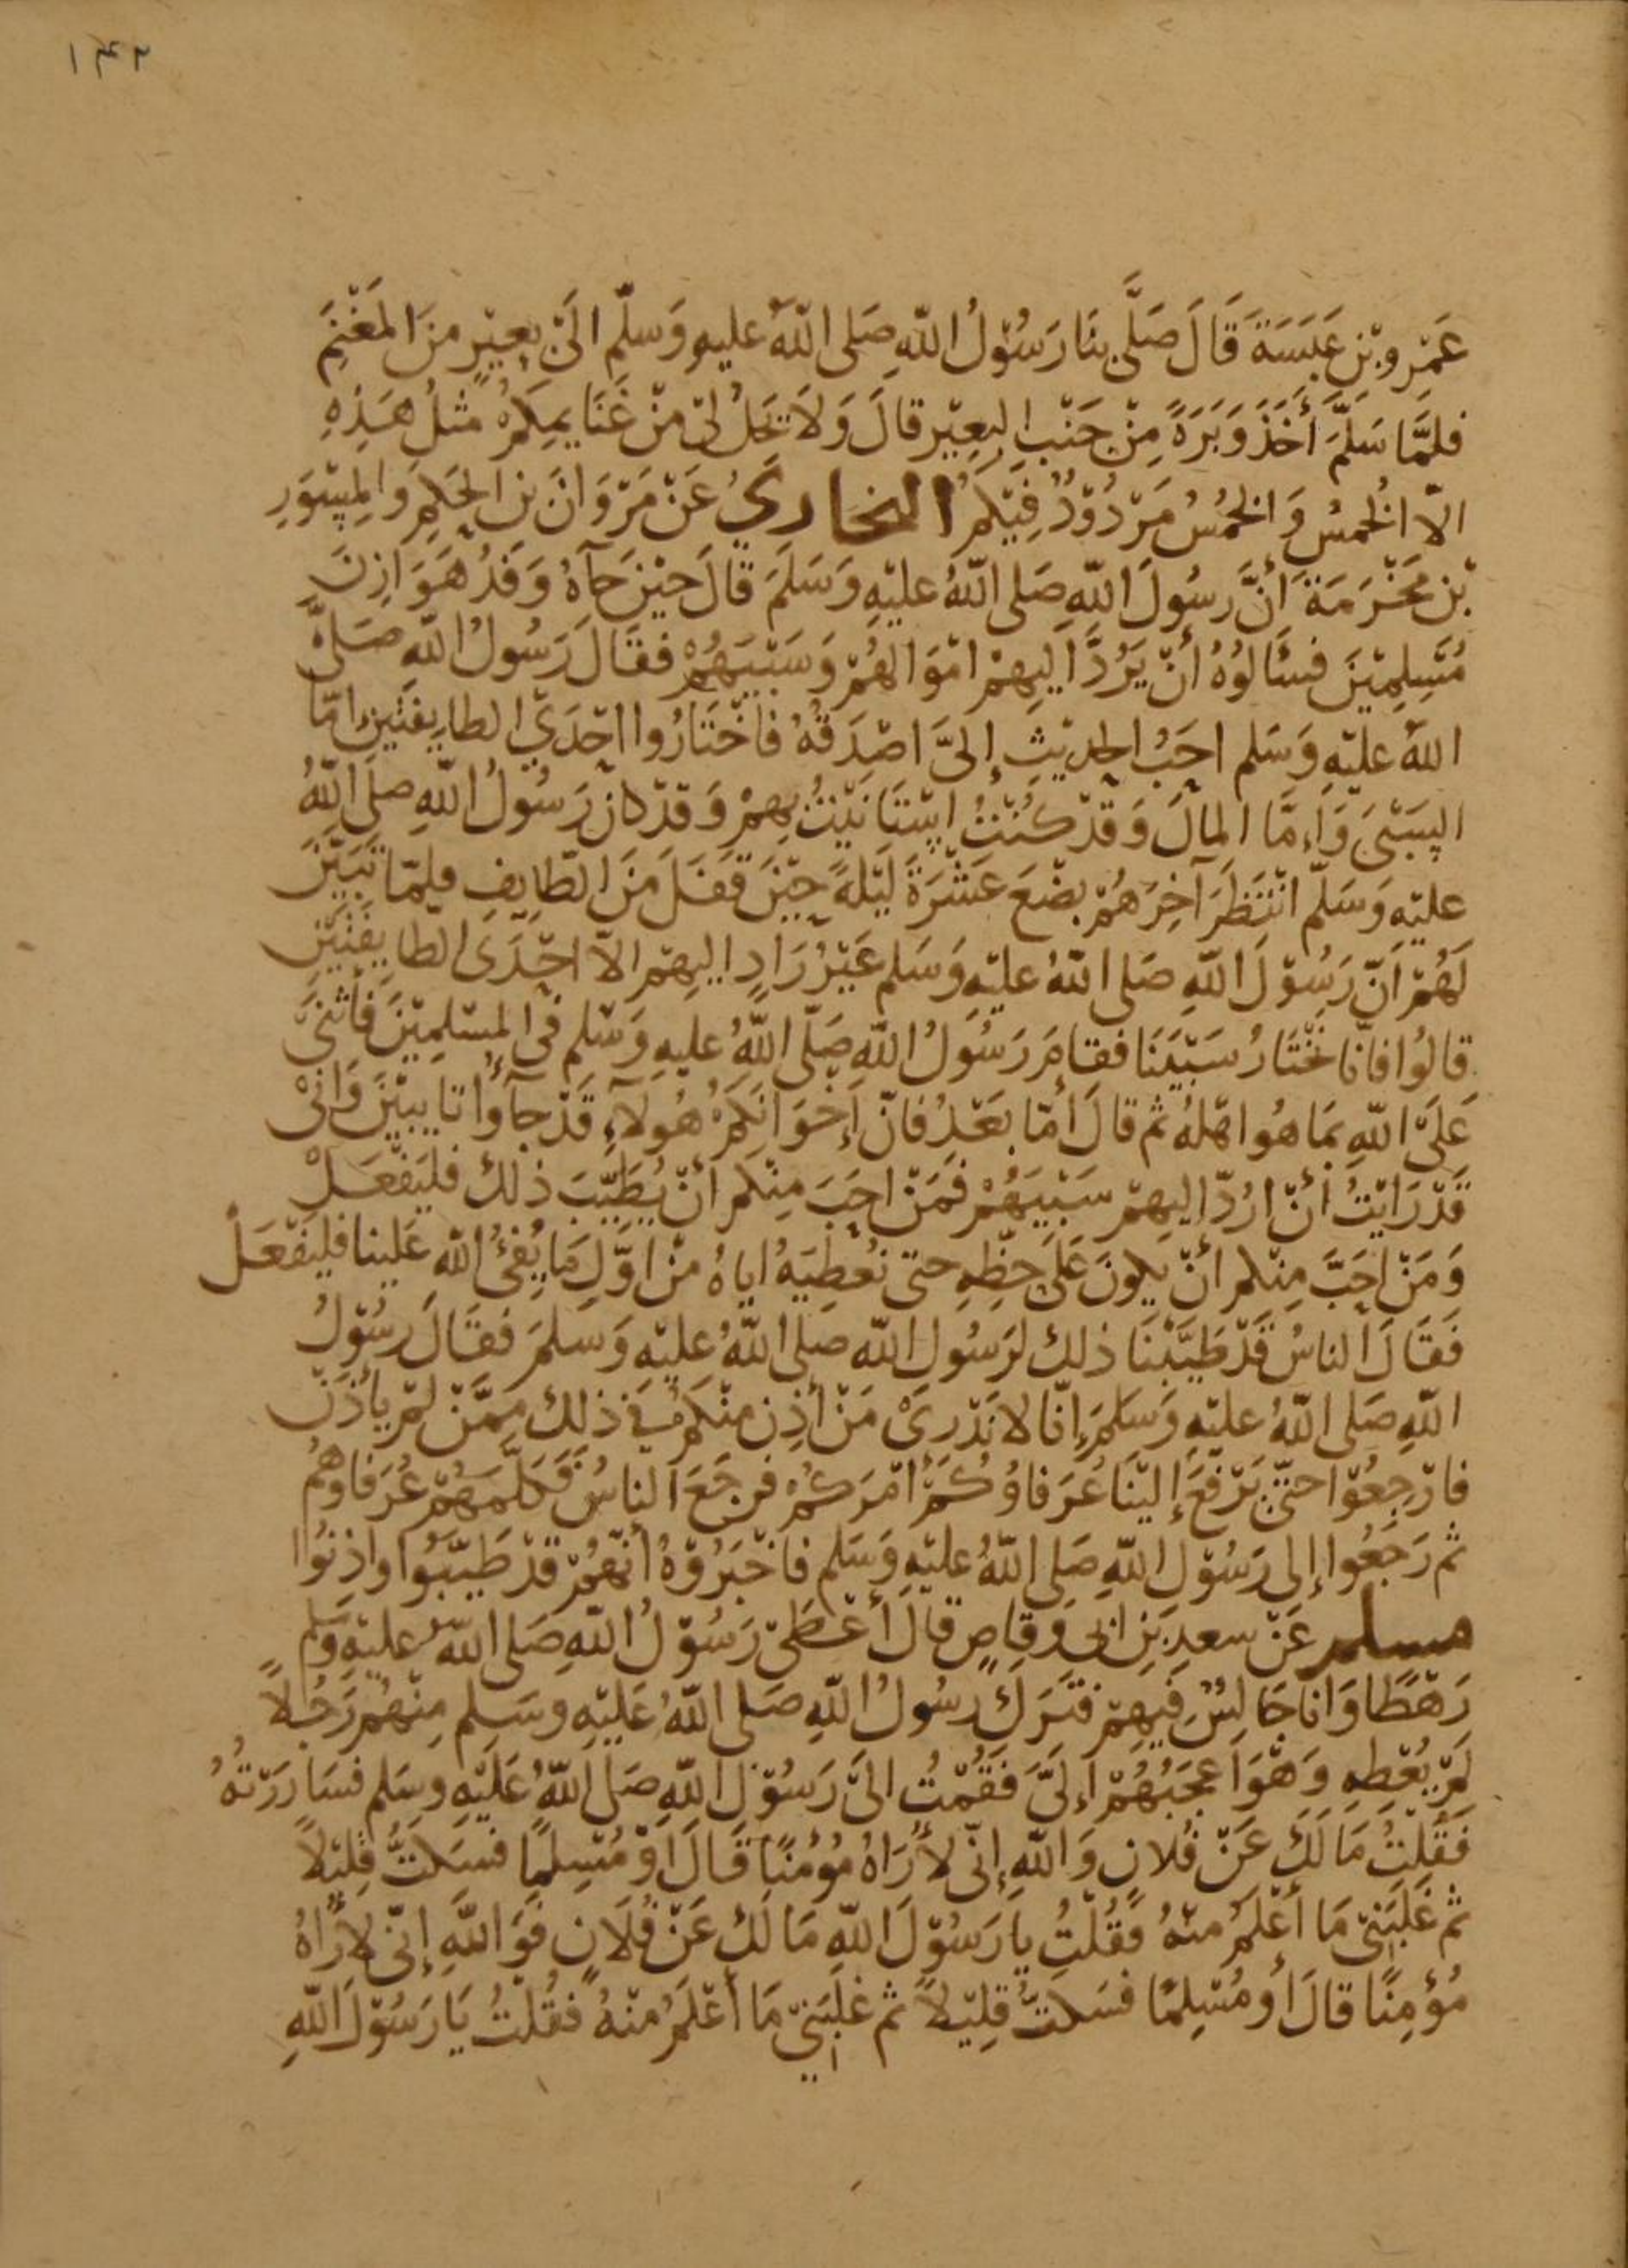 ١٤٢
عَمْرِو بْنِ عَبَسَةَ قَالَ صَلَّى بِنَا رَسُوْلُ اللّٰهِ صَلى اللّٰهُ عليهِ وَسَلّم الَىْ بعِيْرٍ منَ المَغْنَمِ
فلمَّا سَلَّمَ أَخَذَ وَبَرَةً مِنْ جَنْبِ البعِيْرِ قالَ وَلاَ يَحِلُ لِىْ منْ غَنَايمِكمُ مثلُ هَذِهِ
الّا الخمُسُ وَالخمُسُ مَرْدُوْدٌ فِيْكمُ البخاريُ عَنْ مَرْوَانَ بنِ الحَكمِ وَالمِسْوَرِ
بْنِ مَخْرَمَةَ أنَّ رسُولَ اللّٰهِ صَلى اللّٰهُ عليْهِ وَسَلمَ قَالَ حيْنَ جآهُ وَفدُ هَوَازِنَ
مُسْلِمِيْنَ فسَألوُهُ أنْ يَرُدَّ اليهِمْ امْوَالهُمْ وَسَبْيَهُمْ فقَالَ رَسُولُ اللّٰهِ صَلى
اللّٰهُ عليْهِ وَسَلم احَبُ الحديْثِ إلىَّ اصْدَقهُ فاخْتَارُوا احْدَيْ الطايِفتَينِ امّا
السَبْىَ وَاِمَّا المالَ وَقدْ كنْتُ اسْتَانَيْتُ بهِمْ وَقدْ كان رَسُولُ اللّٰهِ صلى اللّٰهُ
عليْهِ وَسَلّم انْتَظَرَ آخِرَهُمْ بضْعَ عَشْرَةَ ليْلةً حيْنَ قفَلَ منَ الطّايِفِ فلمّا تبَيّنَ
لَهُمْ انّ رَسُوْلَ اللّٰهِ صَلى اللّٰهُ عليْهِ وَسَلم غيْرُ رَادٍ اليهِمْ الاّ احْدَى الطايِفَتَيْنِ
قالوُا فانّا نخْتَارُ سَبْيَنَا فقامَ رَسُولُ اللّٰهِ صَلّى اللّٰهُ عليهِ وَسَلم فى المسْلمِيْنَ فأثْنىَ
عَلىَ اللّٰهِ بمَا هُوَ اهْلهُ ثم قالَ أمّا بعْدُ فانّ إخْوَانكمُ هُولآءِ قَدْ جآؤُا تايبيْنَ وَانىْ
قَدْ رَايْتُ أنْ ارُدّ اليهِمْ سَبْيَهُمْ فَمَنْ احَبَ مِنكم أنْ يُطَيّبَ ذلك فليَفْعَلْ
وَمَنْ احَبَّ مِنكم أنْ يكونَ عَلى حظّهِ حتّى نُعْطِيَهُ اياهُ منْ اوَّلِ مَا يُفئُ اللّٰهِ عَلينا فليَفْعَلْ
فَقَالَ الناسُ قَدْ طَيَّبْنَا ذلك لرَسُولِ اللّٰه صَلى اللّٰهُ عليْهِ وَسَلمَ فقَالَ رَسُوْلُ
اللّٰهِ صَلى اللّٰهُ عليْهِ وَسَلمَ إنّا لا نَدْرىْ مَنْ أذِنَ منْكمُ في ذلك مِمَّنْ لمْ يأذَنْ
فارْجِعُوْا حتّى يَرْفعَ إليْنَا عُرَفاؤُكمُ أمْرَكمُ فرجَعَ الناسُ فَكلّمَهُمْ عُرَفاوهُم
ثم رَجَعُوا إلى رَسُوْلِ اللّٰهِ صَلى اللّٰهُ عليْهِ وَسَلم فاخْبَرُوْهُ أنّهُمْ قدْ طَيّبُوا واذِنُوا
مسلم عَنْ سعدِ بْنِ ابى وَقاصٍ قالَ أعْطىْ رَسُوْلُ اللّٰهِ صَلى اللّٰه عليْهِ وَسَلم
رَهْطًا وَانا جَالِسٌ فيهِمْ فتَرَكَ رسُولُ اللّٰهِ صَلى اللّٰهُ عَليْهِ وسَلم مِنْهُم رَجُلاً
لمْ يُعْطِهِ وَهْوَ اعْجَبُهُمْ إلىَّ فَقُمْتُ الىَ رَسُوْلِ اللّٰهِ صَلى اللّٰهُ عَليْهِ وسَلم فسَارَرْتهُ
فَقُلتُ مَا لَكَ عَنْ فُلانٍ وَاللّٰهِ إنّى لأرَاهُ مُؤمُنًا قَالَ أوْ مُسْلِمًا فسَكتُّ قليْلاً
ثم غَلَبَنىْ مَا أعْلَمُ منهُ فَقُلْتُ يا رَسُوْلَ اللّٰهِ مَا لكَ عَنْ فُلَانٍ فَوَاللّٰهِ إنّى لأرَاهُ
مُؤمِنًا قالَ أو مُسْلِمًا فسَكتُّ قلِيْلاً ثم غلَبَنىْ مَا أعْلَمُ منْهُ فقُلتُ يَا رَسُوْلَ اللّٰهِ